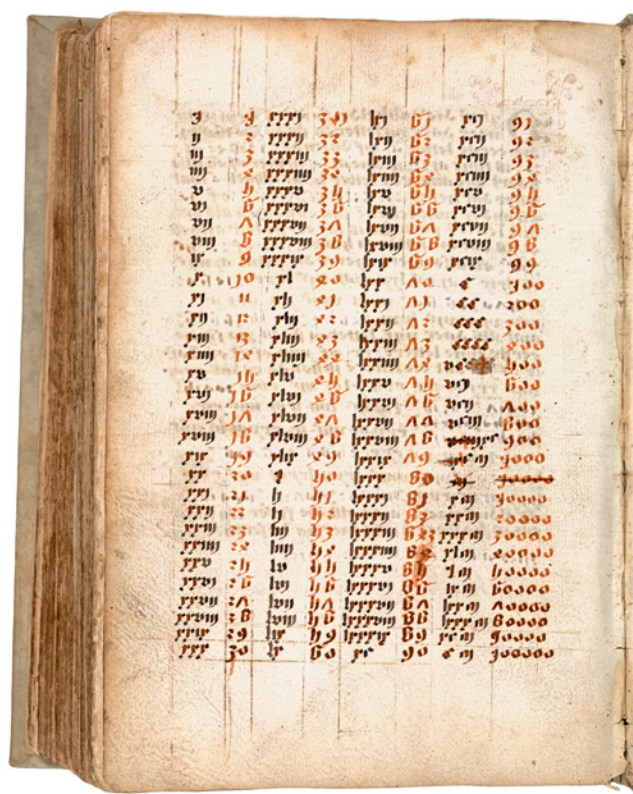 j 1 xxxj 31 lxj 61 xcj 91
ij 2 xxxij 32 lxij 62 xcij 92
iij 3 xxxiij 33 lxiij 63 xciij 93
iiij 4 xxxiiij 34 lxiiij 64 xciiij 94
v 5 xxxv 35 lxv 65 xcv 95
vj 6 xxxvj 36 lxvj 66 xcvj 96
vij 7 xxxvij 37 lxvij 67 xcvij 97
viij 8 xxxviij 38 lxviij 68 xcviij 98
ix 9 xxxix 39 lxix 69 xcix 99
x 10 xl 40 lxx 70 c 100
xj 11 xlj 41 lxxj 71 cc 200
xij 12 xlij 42 lxxij 72 ccc 300
xiij 13 xliij 43 lxxiij 73 cccc 400
xiiij 14 xliiij 44 lxxiiij 74 vc 500
xv 15 xlv 45 lxxv 75 600
xvj 16 xlvj 46 lxxvj 76 700
xvij 17 xlvij 47 lxxvij 77 800
xviij 18 xlviij 48 lxxviij 78 900
xix 19 xlix 49 lxxix 79 1000
xx 20 l 50 lxxx 80
xxj 21 lj 51 lxxxj 81 x m 10000
xxij 22 lij 52 lxxxij 82 xx m 20000
xxiij 23 liij 53 lxxxiij 83 xxx m 30000
xxiiij 24 liiij 54 lxxxiiij 84 xl m 40000
xxv 25 lv 55 lxxxv 85 l m 50000
xxvj 26 lvj 56 lxxxvj 86 lx m 60000
xxvij 27 lvij 57 lxxxvij 87 lxx m 70000
xxviij 28 lviij 58 lxxxviij 88 lxxx m 80000
xxix 29 lix 59 lxxxix 89 xc m 90000
xxx 30 lx 60 xc 90 c m 100000